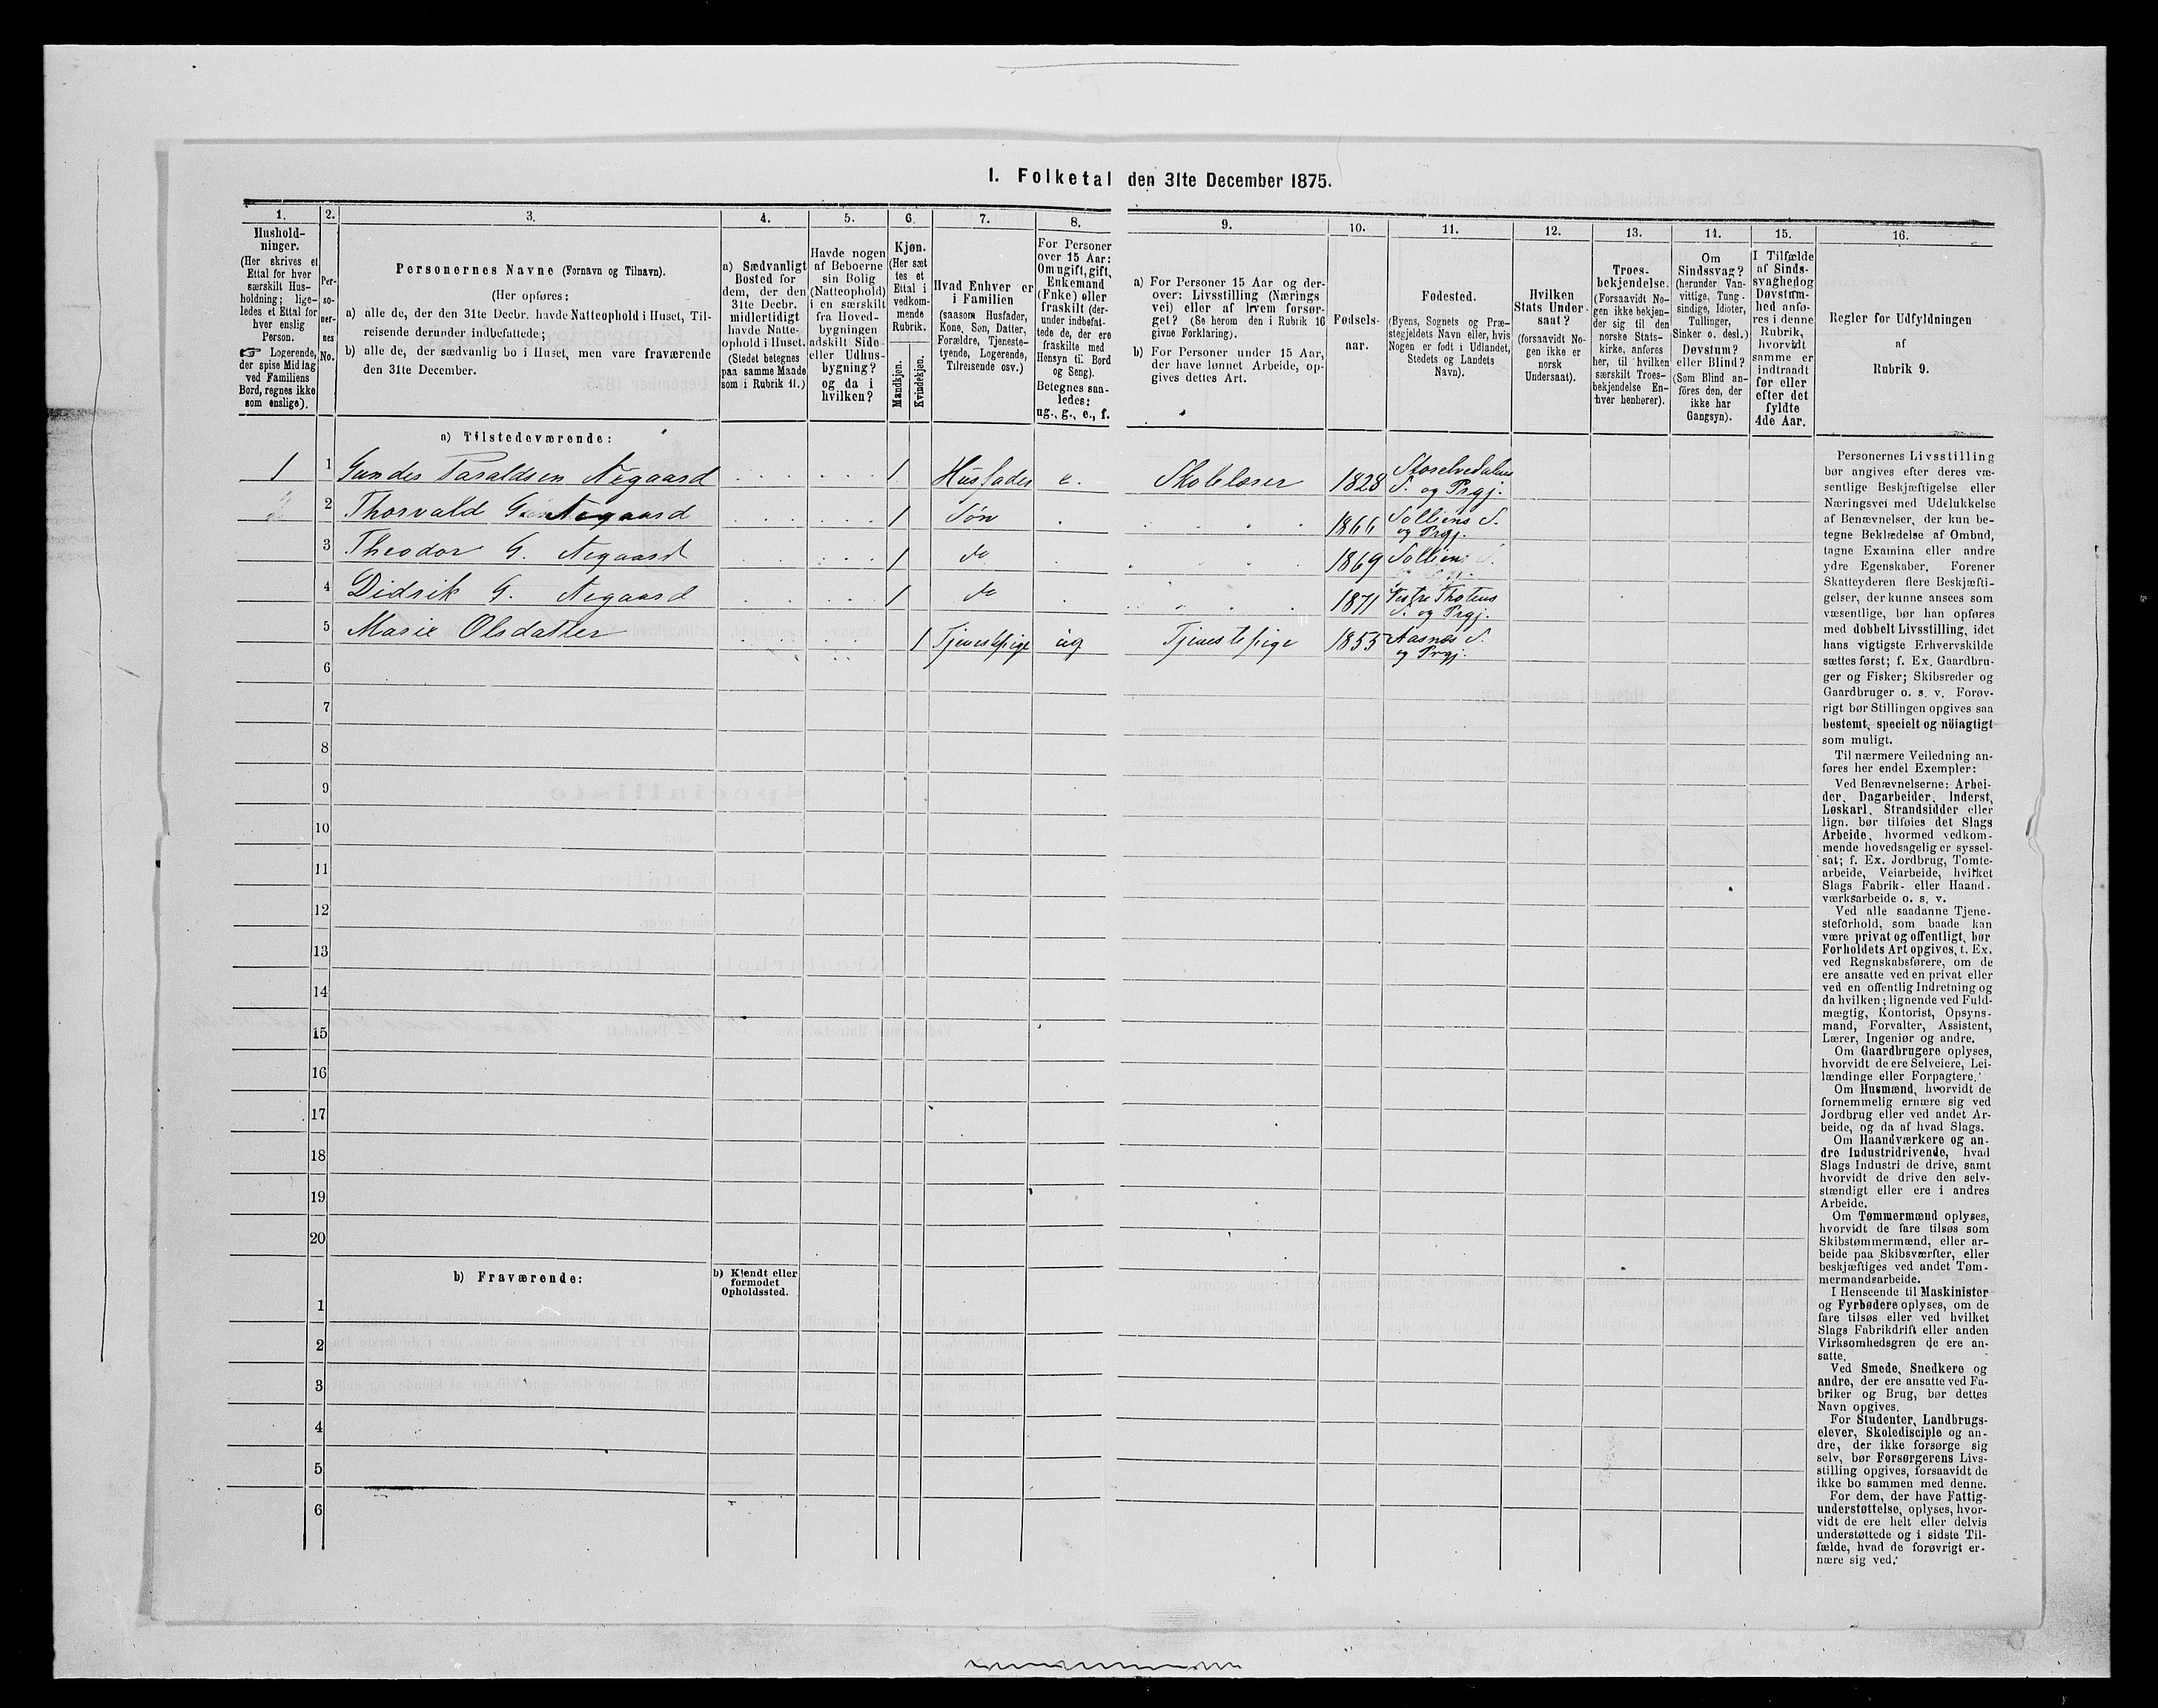 I. Folketal den 31te December 1875.
1. 2. 3. 4. 5. 6. 7. 8. 9. 10. 11. 12. 13. 14. 15. 16.
Hushold-
ninger.
(Her skrives et
Ettal for hver
særskilt Hus-
holdning; lige-
ledes et Ettal for
hver enslig
Person.
☞ Logerende,
der spise Middag
ved Familiens
Bord, regnes ikke
som enslige).
Per-
so-
ner-
nes
No.
Personernes Navne (Fornavn og Tilnavn).
(Her opføres:
a) alle de, der den 31te Decbr. havde Natteophold i Huset, Til-
reisende derunder indbefattede;
b) alle de, der sædvanlig bo i Huset, men vare fraværende
den 31te December.
a) Sædvanligt
Bosted for
dem, der den
31te Decbr.
midlertidigt
havde Natte-
ophold i Huset.
(Stedet betegnes
paa samme Maade
som i Rubrik 11.)
Havde nogen
af Beboerne
sin Bolig
(Natteophold)
i en særskilt
fra Hoved-
bygningen
adskilt Side-
eller Udhus-
bygning?
og da i
hvilken?
Kjøn.
(Her sæt
tes et
Ettal i
vedkom-
mende
Rubrik.
Mandkjøn.
Kvindekjøn.
Hvad Enhver er
i Familien
(saasom Husfader,
Kone, Søn, Datter,
Forældre, Tjeneste-
tyende, Logerende,
Tilreisende osv.)
For Personer
over 15 Aar:
Om ugift, gift,
Enkemand
(Enke) eller
fraskilt (der-
under indbefat-
tede de, der ere
fraskilte med
Hensyn til Bord
og Seng).
Betegnes saa-
ledes:
ug., g., e., f.
a) For Personer 15 Aar og der-
over: Livsstilling (Nærings
vei) eller af hvem forsør-
get? (Se herom den i Rubrik 16
givne Forklaring).
b) For Personer under 15 Aar,
der have lønnet Arbeide, op-
gives dettes Art.
Fødsels-
aar.
Fødested.
(Byens, Sognets og Præ-
stegjeldets Navn eller, hvis
Nogen er født i Udlandet,
Stedets og Landets
Navn).
Hvilken
Stats Under-
saat?
(forsaavidt No-
gen ikke er
norsk
Undersaat).
Troes-
bekjendelse.
(Forsaavidt No-
gen ikke bekjen-
der sig til den
norske Stats-
kirke, anføres
her, til hvilken
særskilt Troes-
bekjendelse En-
hver henhører).
Om
Sindssvag?
(herunder Van-
vittige, Tung-
sindige, Idioter,
Tullinger,
Sinker o. desl.)
Døvstum?
eller Blind?
(Som Blind an-
føres den, der
ikke har
Gangsyn).
I Tilfælde
af Sinds-
svaghedog
Døvstum-
hed anfø-
res i denne
Rubrik,
hvorvidt
samme er
indtraadt
før eller
efter det
fyldte
4de Aar.
Regler for Udfyldningen
af
Rubrik 9.
a) Tilstedeværende:
1 1 Gunder Taraldsen Negaard 1 Husfader e. Skolelærer 1828 Storelvedalens
S. og Prgj.
2 Thorvald G. Negaard 1 Søn 1866 Solliens S.
og Prgj.
3 Theodor G. Negaard 1 do 1869 Solliens S.
4 Didrik G. Negaard 1 do 1871 Vestre Thotens
S. og Prgj.
5 Marie Olsdatter 1 Tjenestepige ug Tjenestepige 1853 Aasnæs S.
og Prgj.
6
7
8
9
10
11
12
13
14
15
16
17
18
19
20
b) Fraværende:
b) Kjendt eller
formodet
Opholdssted.
1
2
3
4
5
6
Personernes Livsstilling
bør angives efter deres væ-
sentlige Beskjæftigelse eller
Næringsvei med Udelukkelse
af Benævnelser, der kun be-
tegne Beklædelse af Ombud,
tagne Examina eller andre
ydre Egenskaber. Forener
Skatteyderen flere Beskjæfti-
gelser, der kunne ansees som
væsentlige, bør han opføres
med dobbelt Livsstilling, idet
hans vigtigste Erhvervskilde
sættes først; f. Ex. Gaardbru-
ger og Fisker; Skibsreder og
Gaardbruger o. s. v. Forøv-
rigt bør Stillingen opgives saa
bestemt, specielt og nöiagtigt
som muligt.
Til nærmere Veiledning an-
føres her endel Exempler:
Ved Benævnelserne: Arbei-
der, Dagarbeider, Inderst,
Løskarl, Strandsidder eller
lign. bør tilføies det Slags
Arbeide, hvormed vedkom-
mende hovedsagelig er syssel-
sat; f. Ex. Jordbrug, Tomte-
arbeide, Veiarbeide, hvilket
Slags Fabrik- eller Haand-
værksarbeide o. s. v.
Ved alle saadanne Tjene-
steforhold, som baade kan
være privat og offentligt, bør
Forholdets Art opgives, t. Ex.
ved Regnskabsførere, om de
ere ansatte ved en privat eller
ved en offentlig Indretning og
da hvilken; lignende ved Fuld-
mægtig, Kontorist, Opsyns-
mand, Forvalter, Assistent,
Lærer, Ingeniør og andre.
Om Gaardbrugere oplyses,
hvorvidt de ere Selveiere, Lei-
lændinge eller Forpagtere.
Om Husmænd, hvorvidt de
fornemmelig ernære sig ved
Jordbrug eller ved andet Ar-
beide, og da af hvad Slags.
Om Haandværkere og an-
dre Industridrivende, hvad
Slags Industri de drive, samt
hvorvidt de drive den selv-
stændigt eller ere i andres
Arbeide.
Om Tømmermænd oplyses,
hvorvidt de fare tilsøs som
Skibstømmermænd, eller ar-
beide paa Skibsværfter, eller
beskjæftiges ved andet Tøm-
mermandsarbeide.
I Henseende til Maskinister
og Fyrbødere oplyses, om de
fare tilsøs eller ved hvilket
Slags Fabrikdrift eller anden
Virksomhedsgren de ere an-
satte.
Ved Smede, Snedkere og
andre, der ere ansatte ved Fa-
briker og Brug, bør dettes
Navn opgives.
For Studenter, Landbrugs-
elever, Skoledisciple og an-
dre, der ikke forsørge sig
selv, bør Forsørgerens Livs-
stilling opgives, forsaavidt de
ikke bo sammen med denne.
For dem, der have Fattig-
understøttelse, oplyses, hvor-
vidt de ere helt eller delvis
understøttede og i sidste Til-
fælde, hvad de forøvrigt er-
nære sig ved.